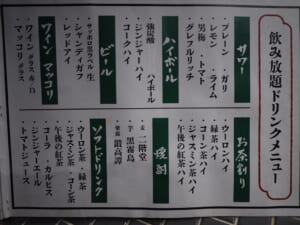 飲み放題ドリンクメニュー
サワー
・プレーン・ガリ
・レモン・ライム
・男梅・トマト
・グレフルリッチ
ハイボール
・強炭酸 ハイボール
・ジンジャーハイ
・コークハイ
ビール
・サッポロ黒ラベル 生
・シャンディガフ
・レッドアイ
ワイン マッコリ
・ワイン グラス 赤/白
・マッコリ グラス
お茶割り
・ウーロンハイ
・緑茶ハイ
・コーン茶ハイ
・ジャスミン茶ハイ
・午後の紅茶ハイ
焼酎
・麦 二階堂
・芋 黒霧島
・紫蘇 鍛高譚
ソフトドリンク
・ウーロン茶・緑茶
・ジャスミン茶・コーン茶
・午後の紅茶
・コーラ・カルピス
・ジンジャーエール
・トマトジュース